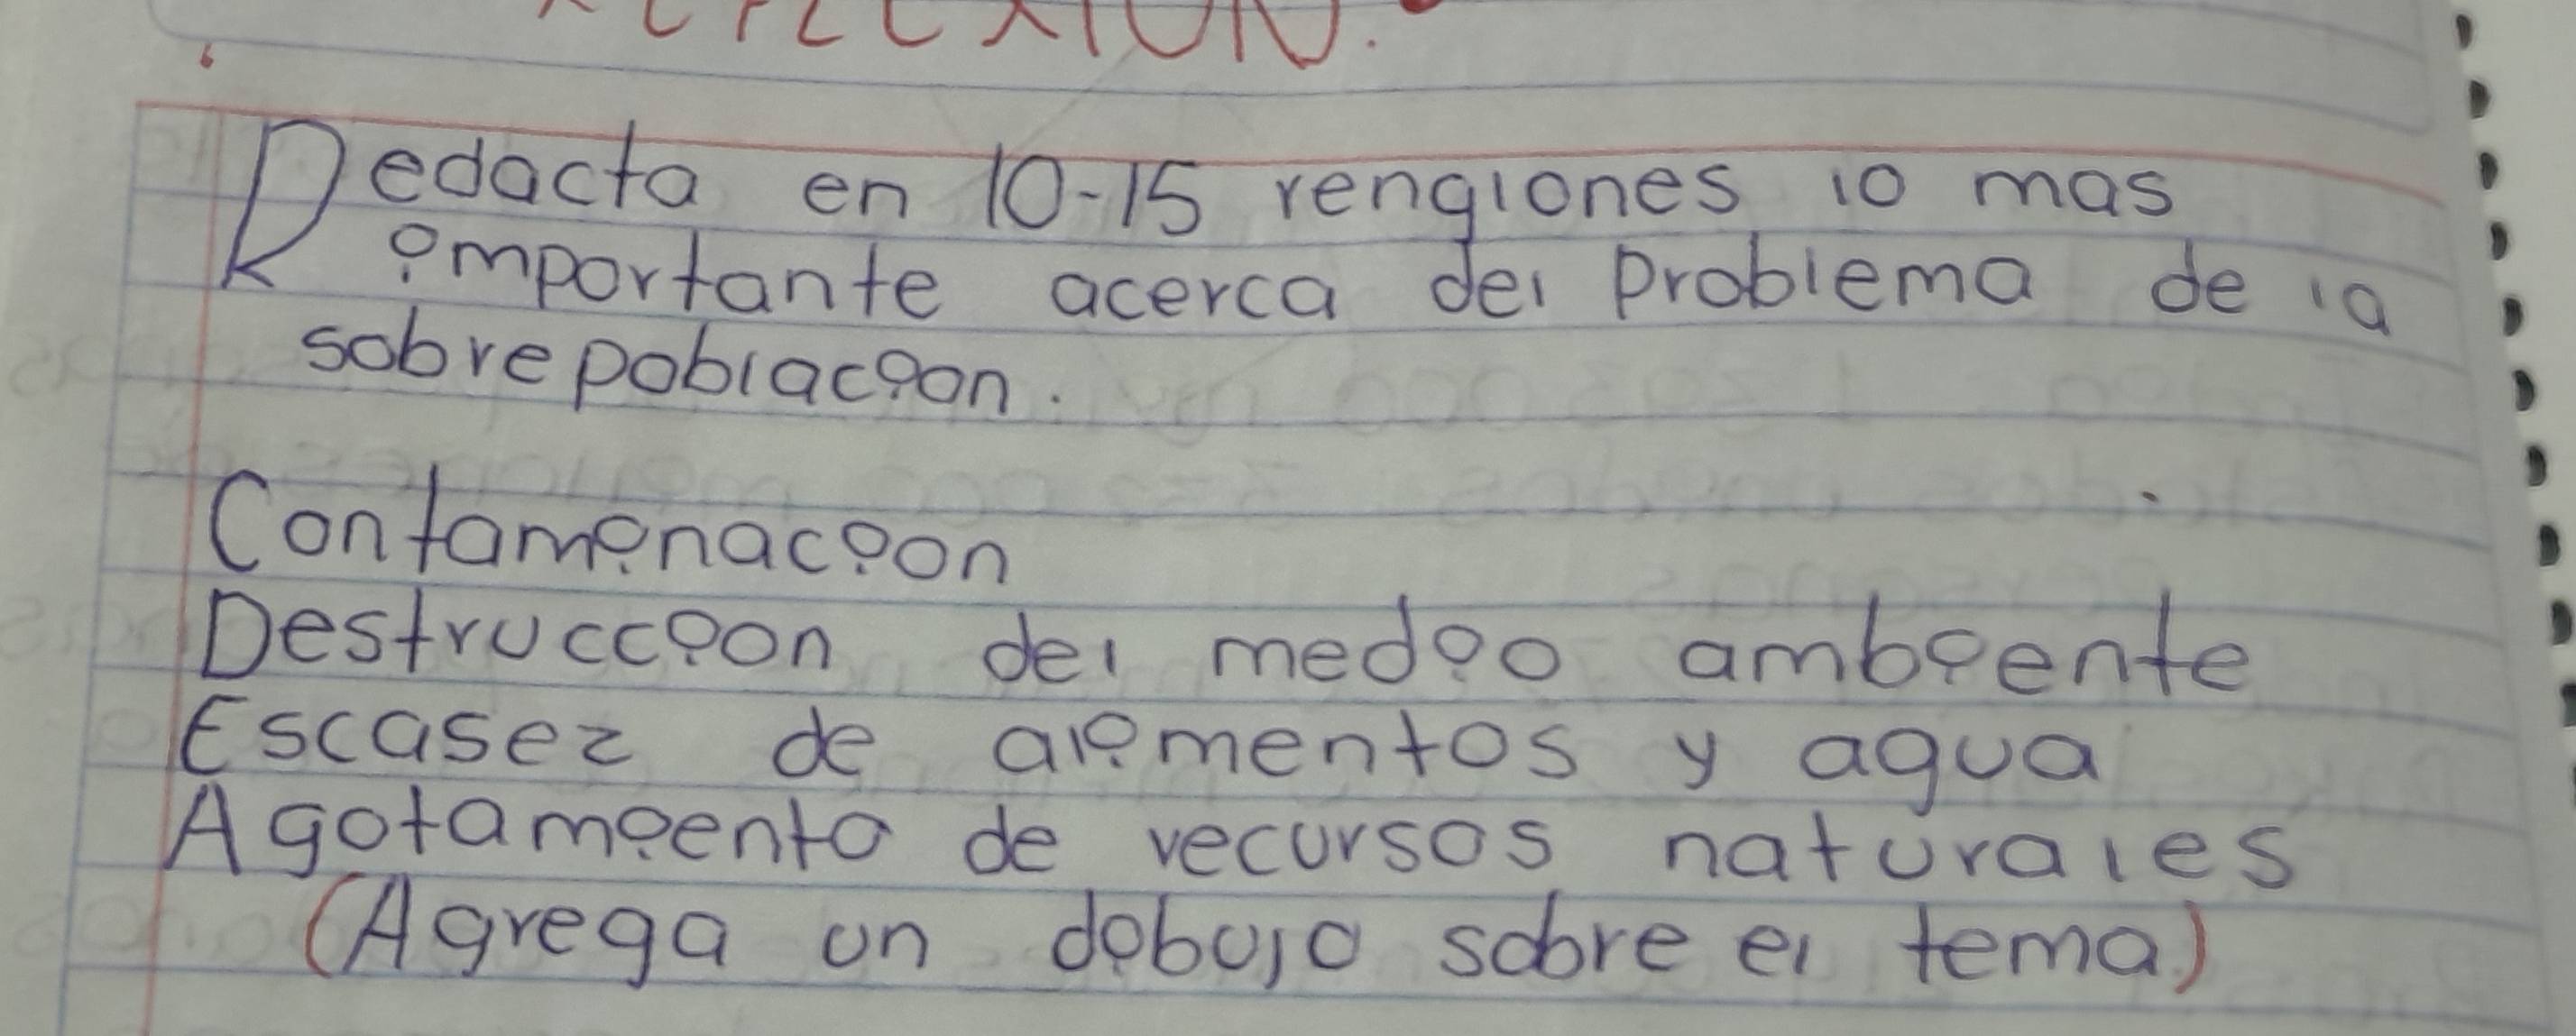 REFLEXIÓN.
Redacta en 10-15 renglones lo mas
importante acerca del problema de la
sobrepoblacion.
Contaminacion
Destruccion del medio ambiente
Escasez de alimentos y agua
Agotamiento de recursos naturales
(Agrega un dibujo sobre el tema)